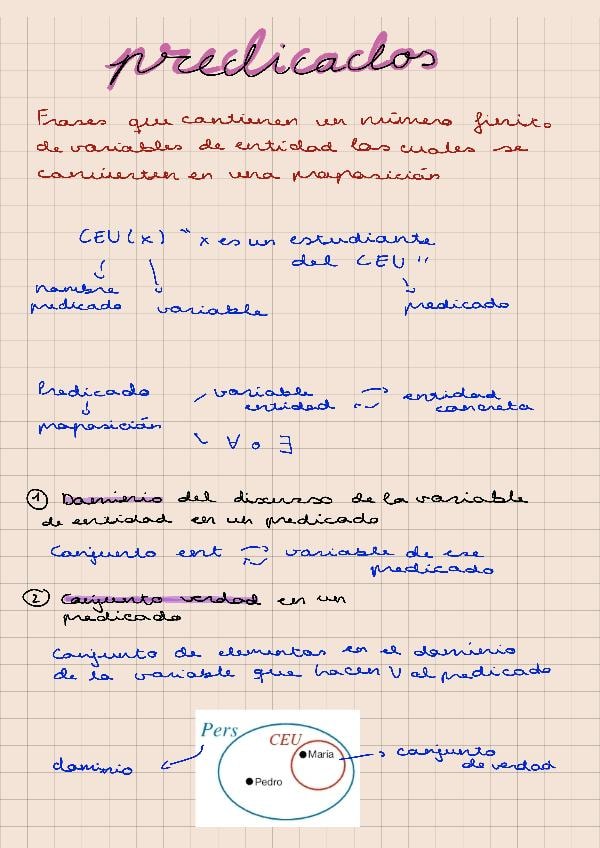 predicados
Frases que contienen un número finito
de variables de entidad las cuales se
convierten en una proposición
CEU(x) "x es un estudiante
del CEU"
nombre
predicado
variable
predicado
Predicado
variable
entidad
entidad
concreta
proposición
∀ o ∃
① Dominio del discurso de la variable
de entidad en un predicado
Conjunto ent variable de ese
predicado
② Conjunto verdad en un
predicado
Conjunto de elementos en el dominio
de la variable que hacen V al predicado
Pers
CEU
María
Pedro
dominio
conjunto
de verdad